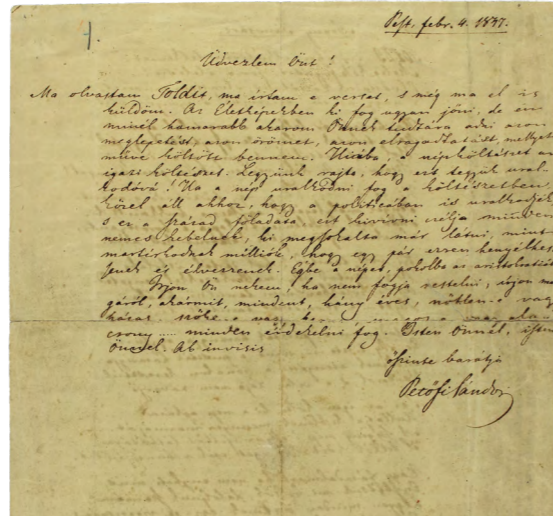 Pest, febr. 4. 1847.
Üdvezlem Önt!
Ma olvastam Toldit, ma irtam e verset, s még ma el is
küldöm. Az Életképekben ki fog ugyan jőni, de én
minél hamarabb akarom Önnek tudtára adni azon
meglepetést, azon örömet, azon elragadtatást, mellyet
műve költött bennem. Hiába, a népköltészet az
igazi költészet. Legyünk rajta, hogy ezt tegyük ural-
kodóvá! Ha a nép uralkodni fog a költészetben,
közel áll ahhoz, hogy a politicában is uralkodjék,
s ez a század föladata, ezt kivivni czélja minden
nemes kebelnek, ki megsokalta már látni, mint
martirkodnak milliók, hogy egy pár ezren henyélhes-
senek és élvezzenek. Égbe a népet, pokolba az aristokratiát!
Irjon Ön nekem, ha nem fogja restelni, irjon ma-
gáról, akármit, mindent, hány éves, nőtlen-e vagy
házas, szőke-e vagy
crony .... minden érdekelni fog. Isten Önnel, isten
Önnel. Ab invisis
őszinte barátja
Petőfi Sándor